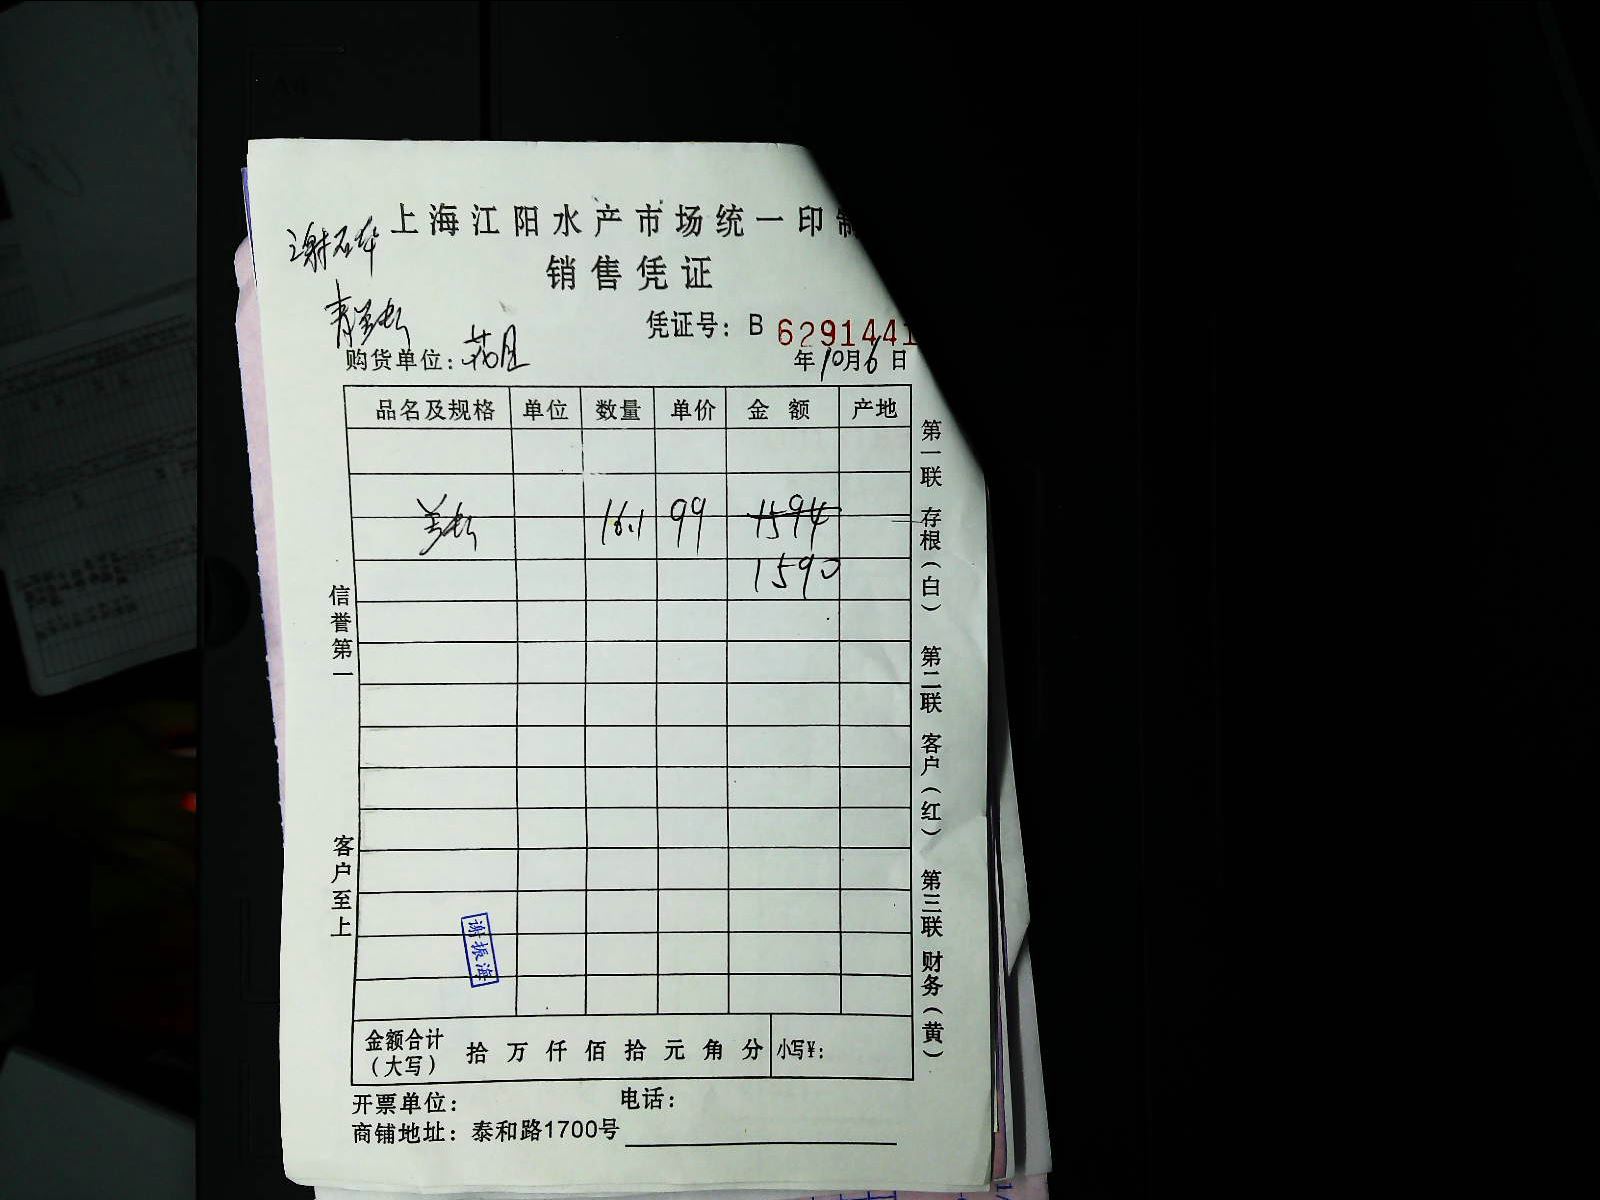 上海江阳水产市场统一印制
销售凭证
凭证号：B 6291441
购货单位：
年10月6日
品名及规格 单位 数量 单价 金 额 产地
16.1 99 1594
1590
信誉第一
客户至上
谢振海
第一联 存根（白） 第二联 客户（红） 第三联 财务（黄）
金额合计（大写） 拾 万 仟 佰 拾 元 角 分 小写¥：
开票单位： 电话：
商铺地址：泰和路1700号